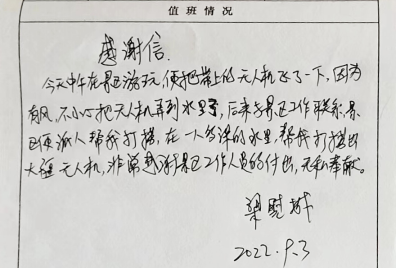 值班情况
感谢信
今天中午在景区游玩,便把带上的无人机飞了一下,因为
有风,不小心把无人机弄到水里了,后来与景区工作联系,景
区便派人帮我打捞,在一人多深的水里,帮我打捞出
大疆无人机,非常感谢景区工作人员的付出,无私奉献。
梁
2022.9.3